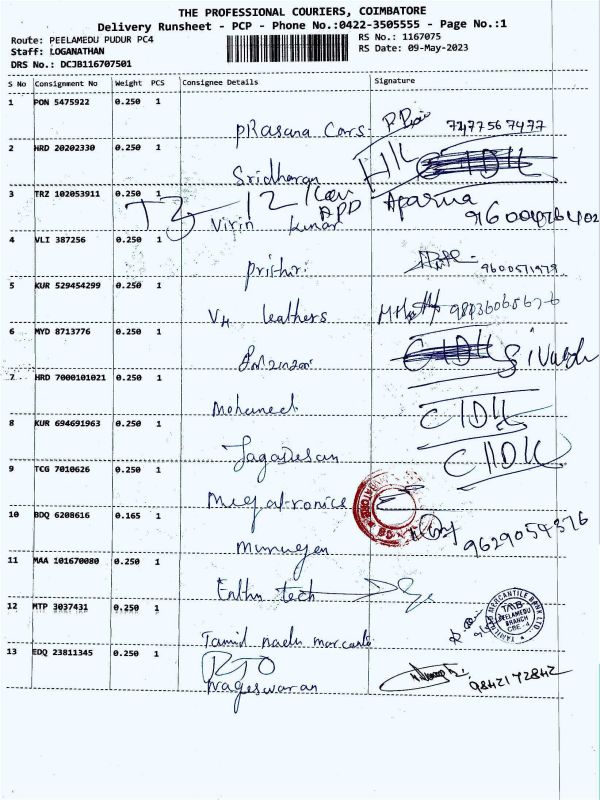 THE PROFESSIONAL COURIERS, COIMBATORE
Delivery Runsheet - PCP - Phone No.:0422-3505555 - Page No.:1
Route: PEELAMEDU PUDUR PC4
Staff: LOGANATHAN
DRS No.: DCJB116707501
RS No.: 1167075
RS Date: 09-May-2023
S No Consignment No Weight PCS Consignee Details Signature
1 PON 5475922 0.250 1
PRasana Cars. 7477567477
2 HRD 20202330 0.250 1
Sridharan
3 TRZ 102053911 0.250 1
Virin Kumar Aparna
4 VLI 387256 0.250 1
prithvi 9600571979
5 KUR 529454299 0.250 1
VH leathers
6 MYD 8713776 0.250 1
7 HRD 7000101021 0.250 1
Mohamed
8 KUR 694691963 0.250 1
Jagadesan
9 TCG 7010626 0.250 1
Megatronics
10 BDQ 6208616 0.165 1
Murugan 9629054376
11 MAA 101670080 0.250 1
Enthu tech
12 MTP 3037431 0.250 1
Tamil nadu marcantile
TAMILNAD MERCANTILE BANK LTD.
TMB
PEELAMEDU
BRANCH
CBE - 4
13 EDQ 23811345 0.250 1
RTO
Nageswaran 9842172842